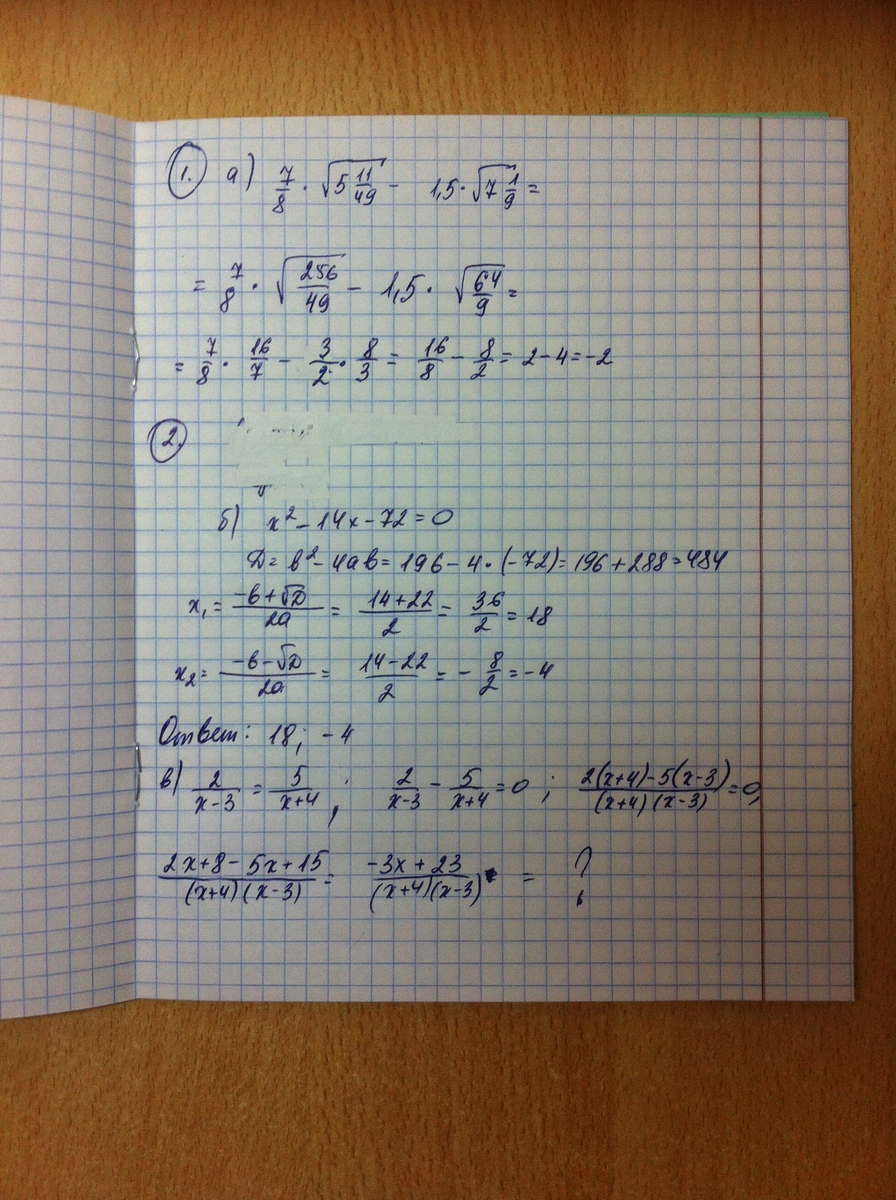 1. а) 7/8 · √(5 11/49) - 1,5 · √(7 1/9) =
= 7/8 · √(256/49) - 1,5 · √(64/9) =
= 7/8 · 16/7 - 3/2 · 8/3 = 16/8 - 8/2 = 2 - 4 = -2
2.
б) x² - 14x - 72 = 0
Д = в² - 4ав = 196 - 4 · (-72) = 196 + 288 = 484
x₁ = (-в + √Д)/2а = (14 + 22)/2 = 36/2 = 18
x₂ = (-в - √Д)/2а = (14 - 22)/2 = - 8/2 = -4
Ответ: 18; -4
в) 2/(x-3) = 5/(x+4) ; 2/(x-3) - 5/(x+4) = 0 ; (2(x+4) - 5(x-3))/((x+4)(x-3)) = 0,
(2x + 8 - 5x + 15)/((x+4)(x-3)) = (-3x + 23)/((x+4)(x-3)) = ?